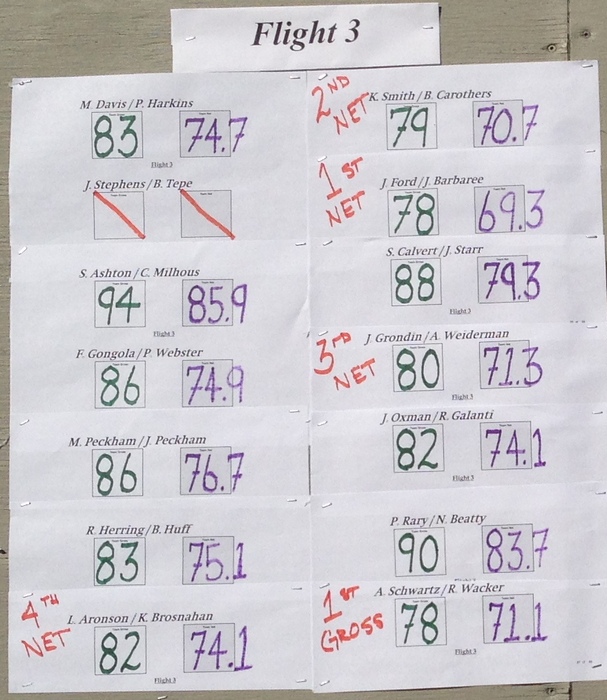 Flight 3
M. Davis / P. Harkins
83 74.7
Flight 3
J. Stephens / B. Tepe
S. Ashton / C. Milhous
94 85.9
Flight 3
F. Gongola / P. Webster
86 74.9
M. Peckham / J. Peckham
86 76.7
R. Herring / B. Huff
83 75.1
4TH NET
L. Aronson / K. Brosnahan
82 74.1
Flight 3
2ND NET
K. Smith / B. Carothers
79 70.7
1ST NET
J. Ford / J. Barbaree
78 69.3
S. Calvert / J. Starr
88 79.3
Flight 3
3RD NET
J. Grondin / A. Weiderman
80 71.3
Flight 3
J. Oxman / R. Galanti
82 74.1
Flight 3
P. Rary / N. Beatty
90 83.7
1ST GROSS
A. Schwartz / R. Wacker
78 71.1
Flight 3